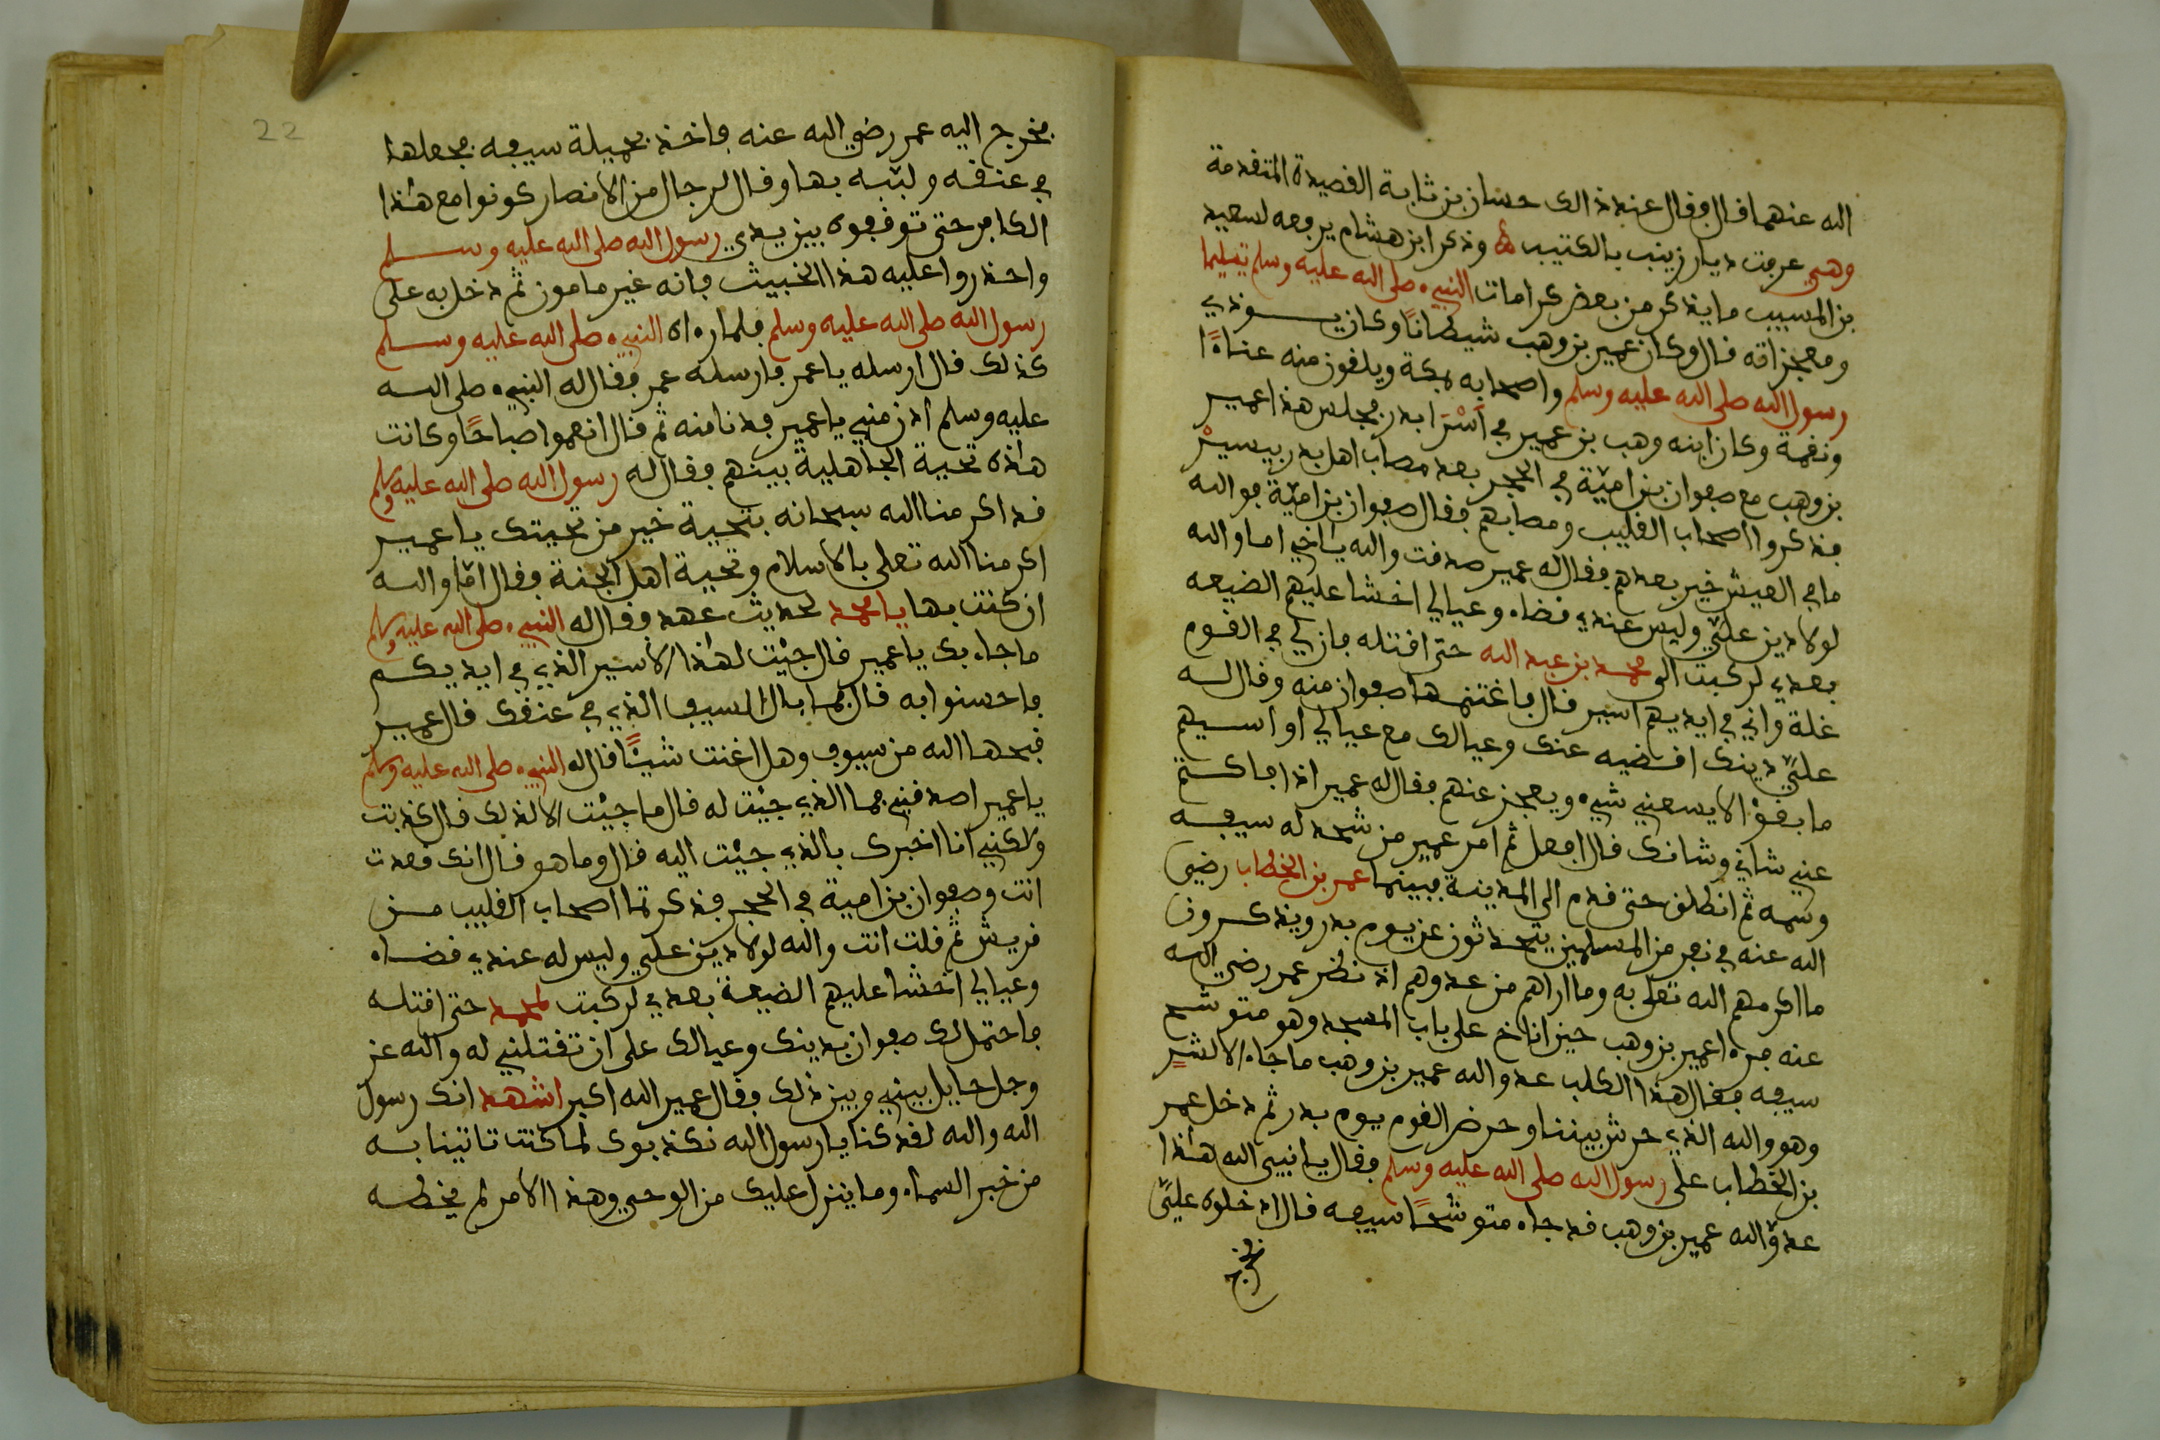 الله عنهما قال وقال عند ذالك حسان بن ثابة القصيدة المتقدمة
وهي عرفت ديار زينب بالكثيب وذكر ابن هشام يرفعه لسعيد
بن المسيب ما يذكر من بعض كرامات النبيء صلى الله عليه وسلم تسليما
ومعجزاته قال وكان عمير بن وهب شيطانًا وكان يـوذي
رسول الله صلى الله عليه وسلم واصحابه بمكة ويلقون منه عناءً
ونقمة وكان ابنه وهب بن عمير في أسْرَا بدر فجلس هذا عمير
بن وهب مع صفوان بن اميّة في الحجر بعد مصاب اهل بدر بيسيرْ
فذكروا اصحاب القليب ومصابهم فقال صفوان بن اميّة فوالله
ما في العيش خير بعدهم فقال له عمير صدقت والله يا أخي اما والله
لولا دين عليّ وليس عندي قضاء وعيالي اخشا عليهم الضيعه
بعدي لركبت الى محمد بن عبد الله حتى اقتله فان لي في القوم
غلة واني في ايديهم أسير قال فاغتنمها صفوان منه وقال له
عليّ دينك اقضيه عنك وعيالك مع عيالي أو أسيهم
ما بقوْا لا يسعني شيء ويعجز عنهم فقال له عمير اذا فاكتم
عني شاني وشانك قال افعل ثم امر عمير من شحد له سيفه
وسمه ثم انطلق حتى قدم الى المدينة فبينما عمر بن الخطاب رضي
الله عنه في نفر من المسلمين يتحدثون عن يوم بدر ويذكرون
ما اكرمهم الله تعلى به وما اراهم من عدوهم اذ نظر عمر رضي الله
عنه فرءا عمير بن وهب حين اناخ على باب المسجد وهو متوشح
سيفه فقال هذا الكلب عدو الله عمير بن وهب ما جاء الا لشرٍ
وهو والله الذي حرش بيننا وحرض القوم يوم بدر ثم دخل عمر
بن الخطاب على رسول الله صلى الله عليه وسلم فقال يا نبيى الله هاذا
عدوّ الله عمير بن وهب قد جاء متوشحًا سيفه قال ادخلوه عليّ
فخرج
22
فخرج اليه عمر رضي الله عنه فاخذ بحميلة سيفه فجعلها
في عنقه ولبّبه بها وقال لرجال من الانصار كونوا مع هاذا
الكافر حتى توقفوه بين يدي رسول الله صلى الله عليه وسلم
واحذروا عليه هذا الخبيث فانه غير مامون ثم دخل به على
رسول الله صلى الله عليه وسلم فلما رءاه النبيء صلى الله عليه وسلم
كذلك قال ارسله يا عمر فارسله عمر فقال له النبيء صلى الله
عليه وسلم أذن مني يا عمير فدنا منه ثم قال انعموا صباحًا وكانت
هاذه تحية الجاهلية بينهم فقال له رسول الله صلى الله عليه وسلم
قد اكرمنا الله سبحانه بتحية خير من تحيتك يا عمير
اكرمنا الله تعلى بالاسلام وتحية أهل الجنة فقال امّا والله
ان كنت بها يا محمد لحديث عهد فقال له النبيء صلى الله عليه وسلم
ما جاء بك يا عمير قال جئت لهاذا الاسير الذي في ايديكم
فاحسنوا به قال فما بال السيف الذي في عنقك قال عمير
قبحها الله من سيوف وهل اغنت شيئًا قال له النبيء صلى الله عليه وسلم
يا عمير اصدقني فما الذي جئت له قال ما جئت الا لذلك قال كذبت
ولاكنني انا اخبرك بالذي جئت اليه قال وما هو قال انك قعدت
انت وصفوان بن امية في الحجر فذكرتما اصحاب القليب من
قريش ثم قلت انت والله لولا دين علي وليس له عندي قضاء
وعيالي اخشا عليهم الضيعة بعدي لركبت لمحمد حتى اقتله
فاحتمل لك صفوان بدينك وعيالك على ان تقتلني له والله عز
وجل حايل بيني وبين ذلك فقال عمير الله اكبر اشهد انك رسول
الله والله لقد كنا يا رسول الله نكذبوك لما كنت تاتينا به
من خبر السماء وما ينزل عليك من الوحي وهذا الامر لم يخطه